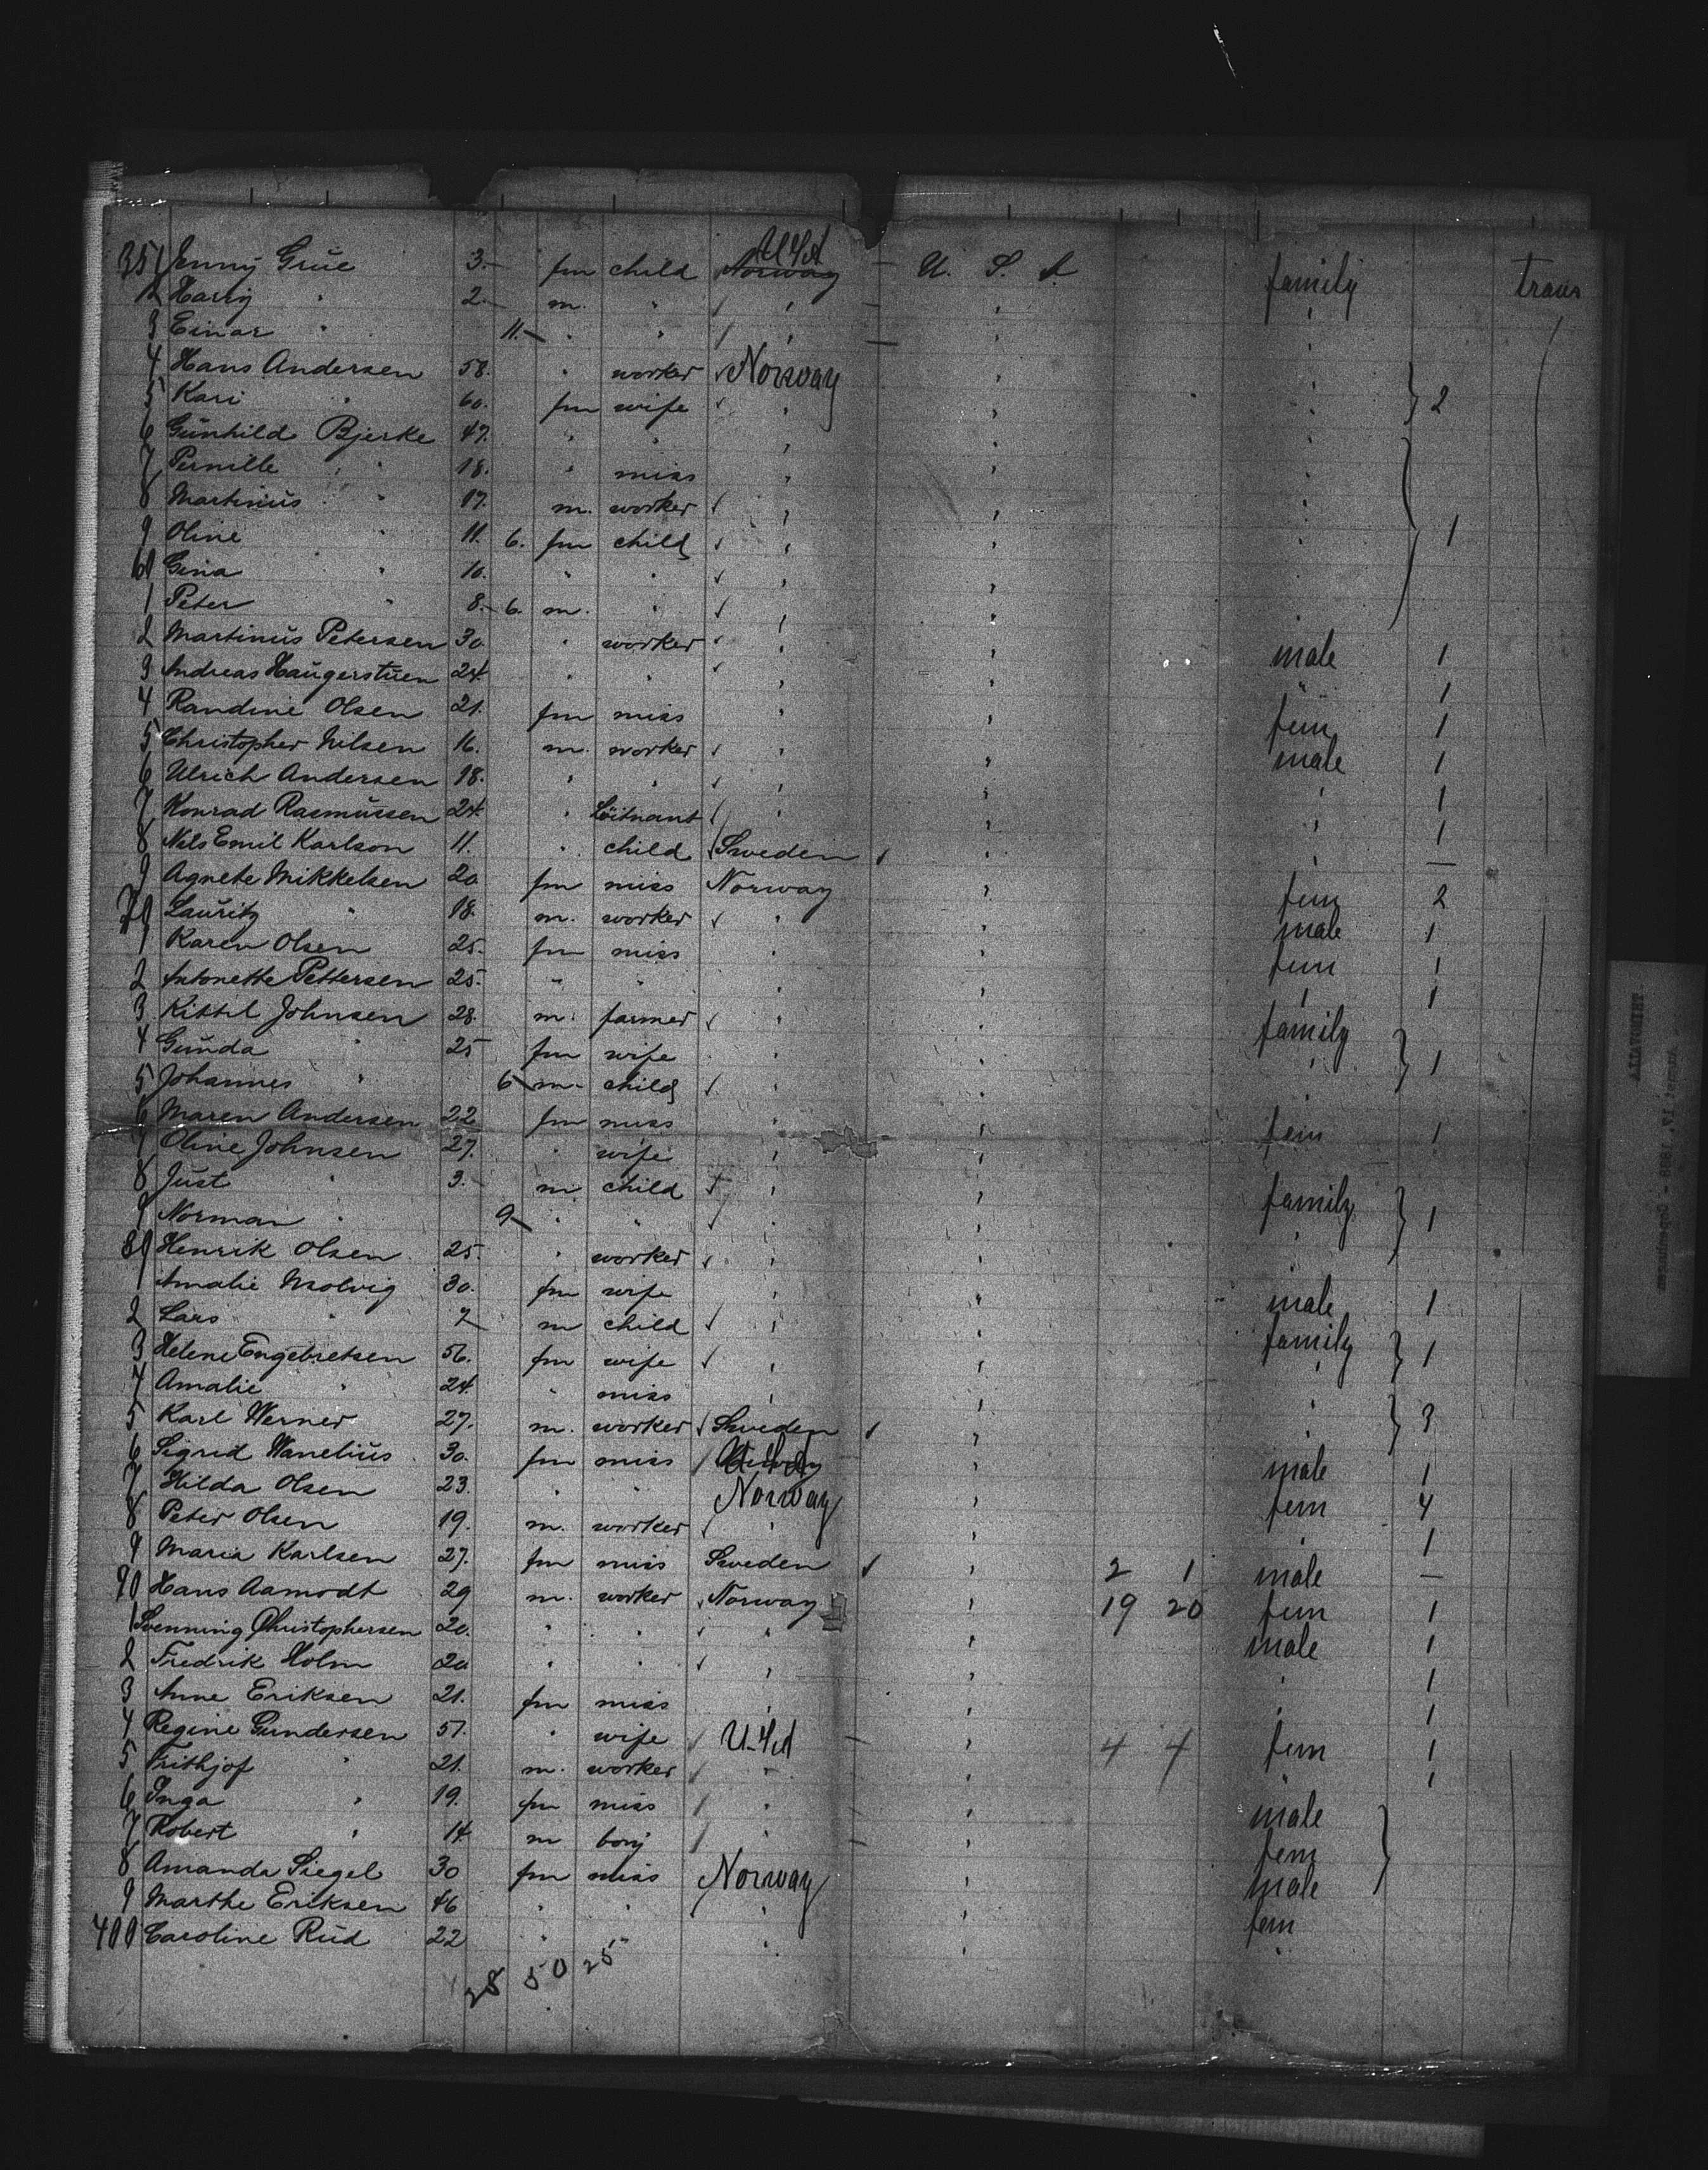 351 Jenny Grüe 3.– fm child Norway USA – U. S. A family trans
2 Harry " 2.– m. " " – " "
3 Einar " 11.– " " " – " "
4 Hans Andersen 58. " worker Norway " "
5 Kari " 60. fm wife " " " 2
6 Günhild Bjerke 47. " " " " "
7 Pernille " 18. " miss " " "
8 Martinüs " 17. m. worker " " "
9 Oline " 11. 6. fm child " " " 1
60 Gina " 10. " " " "
1 Peter " 8.– 6. m. " " " "
2 Martinüs Petersen 30 " worker " " male 1
3 Andreas Haügerstüen 24. " " " " " 1
4 Randine Olsen 21. fm miss " " fem 1
5 Christopher Nilsen 16. m. worker " " male 1
6 Ulrich Andersen 18. " " " " " 1
7 Konrad Rasmüssen 24. " Löitnant " " " 1
8 Nils Emil Karlson 11. " child Sweden " " —
9 Agnete Mikkelsen 20 fm miss Norway " fem 2
70 Laüritz " 18. m. worker " " male 1
1 Karen Olsen 25. fm miss " " fem 1
2 Antonette Pettersen 25. " " " " " 1
3 Kittil Johnsen 28. m. farmer " " family
4 Günda " 25 fm wife " " " 1
5 Johannes " 6 m. child " "
6 Maren Andersen 22 fm miss " " fem 1
7 Oline Johnsen 27. " wife " "
8 Jüst " 3.– m. child " " family
9 Norman " 9– " " " " " 1
80 Henrik Olsen 25. " worker " "
1 Amalie Molvig 30. fm wife " " male 1
2 Lars " 7 m child " " family
3 Helene Engebretsen 56. fm wife " " " 1
4 Amalie " 24. " miss " " "
5 Karl Werner 27. m. worker Sweden " " 3
6 Sigrid Wanelius 30. fm miss USA " male 1
7 Hilda Olsen 23. " " Norway " fem 4
8 Peter Olsen 19. m. worker " " " 1
9 Maria Karlsen 27. fm miss Sweden " 2 1 male —
90 Hans Aamodt 29 m. worker Norway " 19 20 fem 1
1 Svenning Christophersen 20. " " " " male 1
2 Fredrik Holm 20 " " " " 1
3 Anne Eriksen 21. fm miss " " " 1
4 Regine Gundersen 51. " wife USA – " 4 4 fem 1
5 Frithjof " 21. m. worker " " " 1
6 Inga " 19. fm miss " – " male
7 Robert " 14 m boy " – " fem
8 Amanda Siegel 30 fm miss Norway " male
9 Marthe Eriksen 46 " " " " fem
400 Caroline Rüd 22 " " " "
25 50 25